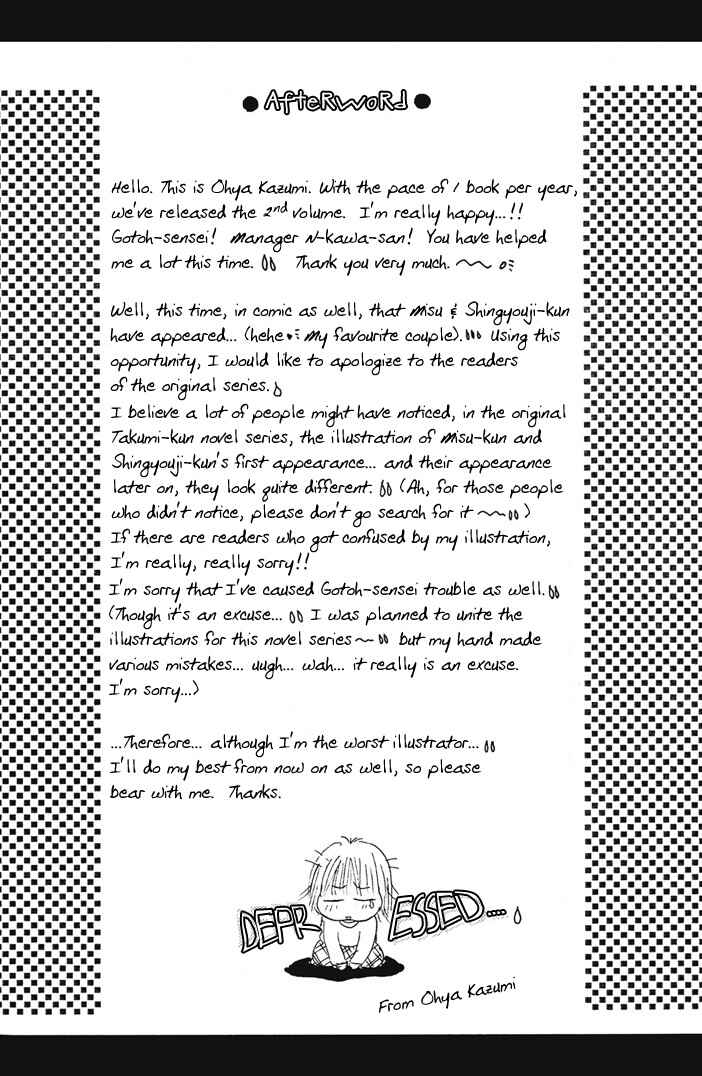 AfteRwoRd
Hello. This is Ohya Kazumi. With the pace of 1 book per year,
we've released the 2nd volume. I'm really happy...!!
Gotoh-sensei! Manager N-kawa-san! You have helped
me a lot this time. Thank you very much.
Well, this time, in comic as well, that Misu & Shingyouji-kun
have appeared... (hehe♥ My favourite couple). Using this
opportunity, I would like to apologize to the readers
of the original series.
I believe a lot of people might have noticed, in the original
Takumi-kun novel series, the illustration of Misu-kun and
Shingyouji-kun's first appearance... and their appearance
later on, they look quite different. (Ah, for those people
who didn't notice, please don't go search for it ~~)
If there are readers who got confused by my illustration,
I'm really, really sorry!!
I'm sorry that I've caused Gotoh-sensei trouble as well.
(Though it's an excuse... I was planned to unite the
illustrations for this novel series~ but my hand made
various mistakes... uugh... wah... it really is an excuse.
I'm sorry...)
...Therefore... although I'm the worst illustrator...
I'll do my best from now on as well, so please
bear with me. Thanks.
DEPRESSED...
From Ohya Kazumi